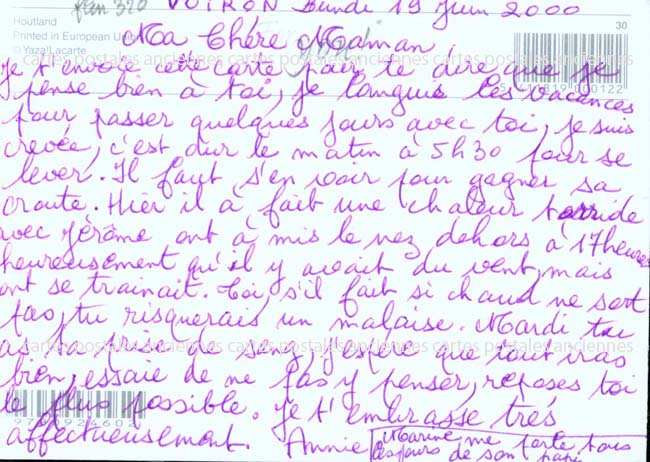 fan 320 VOIRON Lundi 19 Juin 2000
Houtland
30
Printed in European Union
© Yaza!Lacarte
Ma Chère Maman
cartes postales anciennes cartes postales anciennes cartes postales anciennes
Je t'envoie cette carte pour te dire que je
pense bien à toi, je languis les vacances
411819 000122
pour passer quelques jours avec toi, je suis
crevée, c'est dur le matin à 5h30 pour se
lever. Il faut s'en voir pour gagner sa
croute. Hier il à fait une chaleur torride
avec Jérôme ont à mis le nez dehors à 17heures
heureusement qu'il y avait du vent, mais
ont se trainait. Toi, s'il fait si chaud ne sort
pas, tu risquerais un malaise. Mardi tu
as ta prise de sang, j'espère que tout iras
cartes postales anciennes cartes postales anciennes cartes postales anciennes
bien, essaie de ne pas y penser, reposes toi
le plus possible. Je t'embrasse très
affectueusement. Annie
Marine me parle tous
les jours de son papi